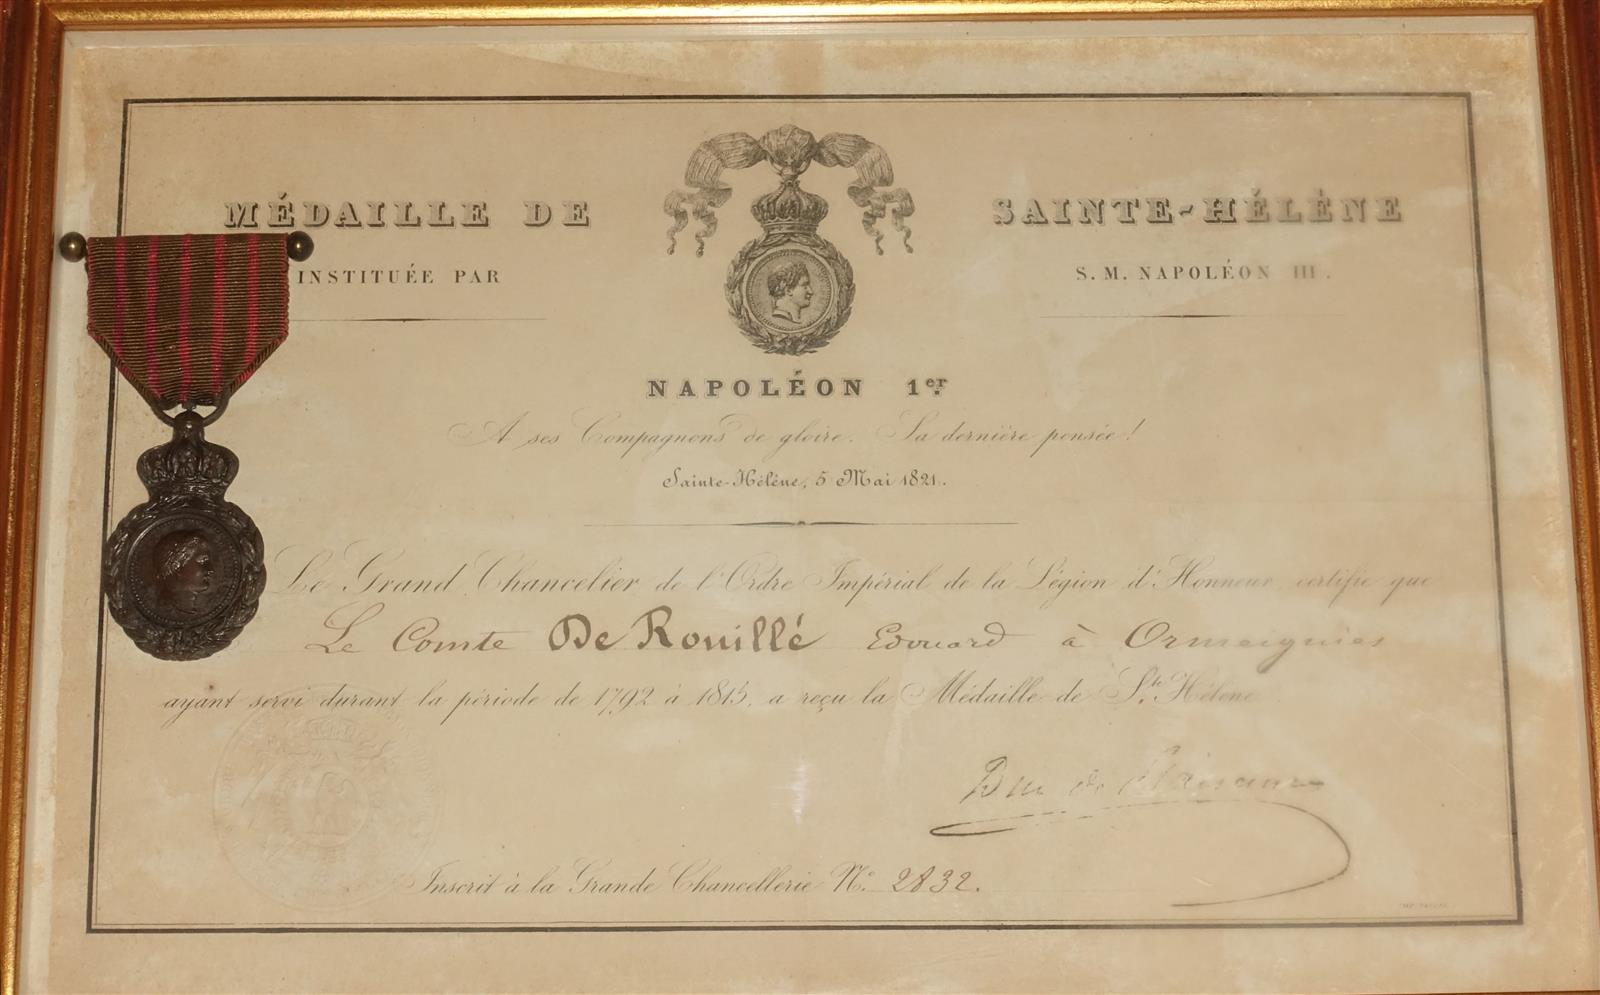 MÉDAILLE DE SAINTE-HÉLÈNE
INSTITUÉE PAR S. M. NAPOLÉON III.
NAPOLÉON 1er.
A ses Compagnons de gloire. Sa dernière pensée!
Sainte-Hélène, 5 Mai 1821.
Le Grand Chancelier de l'Ordre Impérial de la Légion d'Honneur certifie que
Le Comte De Rouillé Edouard à Ormeignies
ayant servi durant la période de 1792 à 1815, a reçu la Médaille de Ste. Hélène
Duc de Plaisance
Inscrit à la Grande Chancellerie No. 2832.